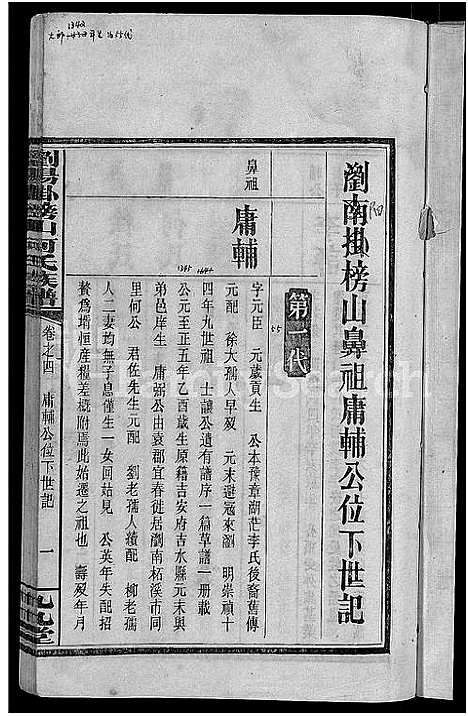 瀏南掛榜山鼻祖庸輔公位下世記
陽
第一代
55
鼻祖
庸輔
1345 1644
字元臣 元歲貢生 公本豫章湖茫李氏後裔舊傳
元配 徐大孺人早歿 元末避寇來瀏 明崇禎十
四年九世祖 士讓公遺有譜序一篇草譜一册載
公元至正五年乙酉歲生原籍吉安府吉水縣元末與
弟邑庠生 庸弼公由袁郡宜春徙居瀏南柘溪市同
里何公 君佐先生元配 劉老孺人續配 柳老孺
人二妻均無子息僅生一女回姑見 公英年失配招
贅為壻恒產糧差概附焉此始遷之祖也 壽歿年月
瀏陽掛榜山何氏族譜
卷之四 庸輔公位下世記
一
1342